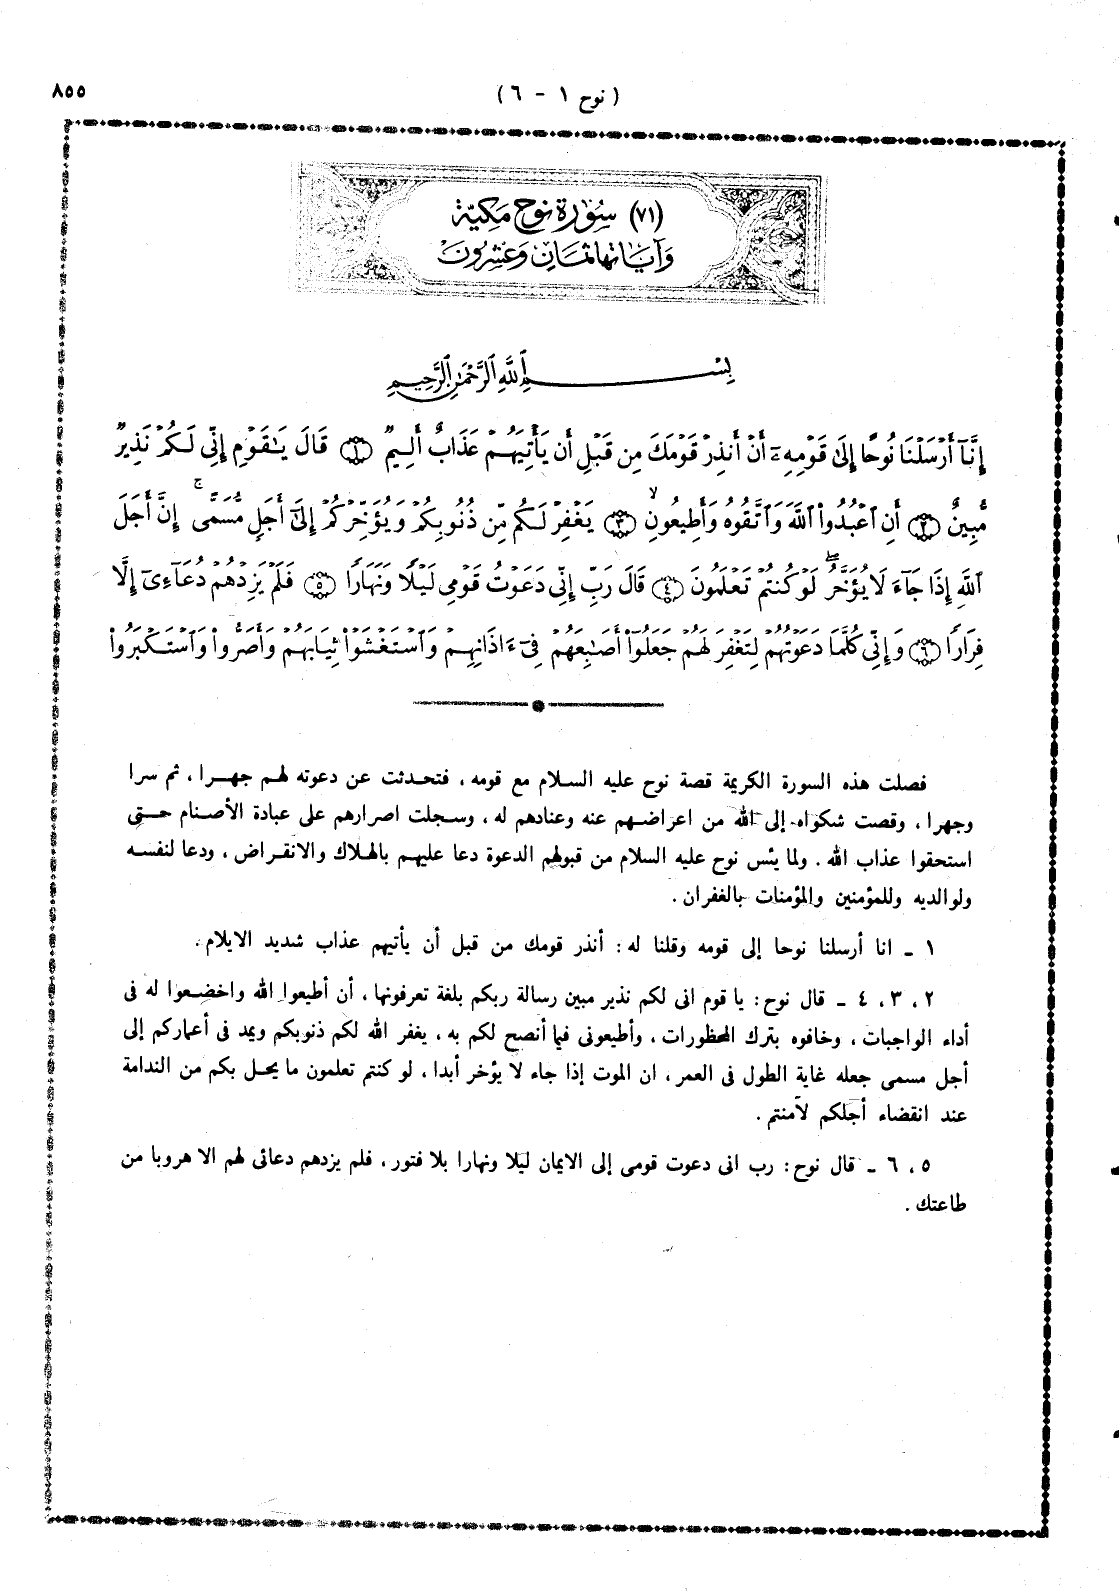 ( نوح ١ - ٦ )
٨٥٥
(٧١) سُورَة نوح مَكيّة
وَآيَاتها ثمَان وَعشِرُونَ
بِسْمِ ٱللَّهِ ٱلرَّحْمَٰنِ ٱلرَّحِيمِ
إِنَّآ أَرْسَلْنَا نُوحًا إِلَىٰ قَوْمِهِۦٓ أَنْ أَنذِرْ قَوْمَكَ مِن قَبْلِ أَن يَأْتِيَهُمْ عَذَابٌ أَلِيمٌ ﴿١﴾ قَالَ يَٰقَوْمِ إِنِّى لَكُمْ نَذِيرٌ
مُّبِينٌ ﴿٢﴾ أَنِ ٱعْبُدُوا۟ ٱللَّهَ وَٱتَّقُوهُ وَأَطِيعُونِ ﴿٣﴾ يَغْفِرْ لَكُم مِّن ذُنُوبِكُمْ وَيُؤَخِّرْكُمْ إِلَىٰٓ أَجَلٍ مُّسَمًّى ۚ إِنَّ أَجَلَ
ٱللَّهِ إِذَا جَآءَ لَا يُؤَخَّرُ ۖ لَوْ كُنتُمْ تَعْلَمُونَ ﴿٤﴾ قَالَ رَبِّ إِنِّى دَعَوْتُ قَوْمِى لَيْلًا وَنَهَارًا ﴿٥﴾ فَلَمْ يَزِدْهُمْ دُعَآءِىٓ إِلَّا
فِرَارًا ﴿٦﴾ وَإِنِّى كُلَّمَا دَعَوْتُهُمْ لِتَغْفِرَ لَهُمْ جَعَلُوٓا۟ أَصَٰبِعَهُمْ فِىٓ ءَاذَانِهِمْ وَٱسْتَغْشَوْا۟ ثِيَابَهُمْ وَأَصَرُّوا۟ وَٱسْتَكْبَرُوا۟
فصلت هذه السورة الكريمة قصة نوح عليه السلام مع قومه ، فتحدثت عن دعوته لهم جهرا ، ثم سرا
وجهرا ، وقصت شكواه إلى الله من اعراضهم عنه وعنادهم له ، وسجلت اصرارهم على عبادة الأصنام حتى
استحقوا عذاب الله . ولما يئس نوح عليه السلام من قبولهم الدعوة دعا عليهم بالهلاك والانقراض ، ودعا لنفسه
ولوالديه وللمؤمنين والمؤمنات بالغفران .
١ ـ انا أرسلنا نوحا إلى قومه وقلنا له : أنذر قومك من قبل أن يأتيهم عذاب شديد الايلام .
٢ ، ٣ ، ٤ ـ قال نوح : يا قوم انى لكم نذير مبين رسالة ربكم بلغة تعرفونها ، أن أطيعوا الله واخضعوا له فى
أداء الواجبات ، وخافوه بترك المحظورات ، وأطيعونى فيما أنصح لكم به ، يغفر الله لكم ذنوبكم ويمد فى أعماركم إلى
أجل مسمى جعله غاية الطول فى العمر ، ان الموت إذا جاء لا يؤخر أبدا ، لو كنتم تعلمون ما يحل بكم من الندامة
عند انقضاء أجلكم لآمنتم .
٥ ، ٦ ـ قال نوح : رب انى دعوت قومى إلى الايمان ليلا ونهارا بلا فتور ، فلم يزدهم دعائى لهم الا هروبا من
طاعتك .